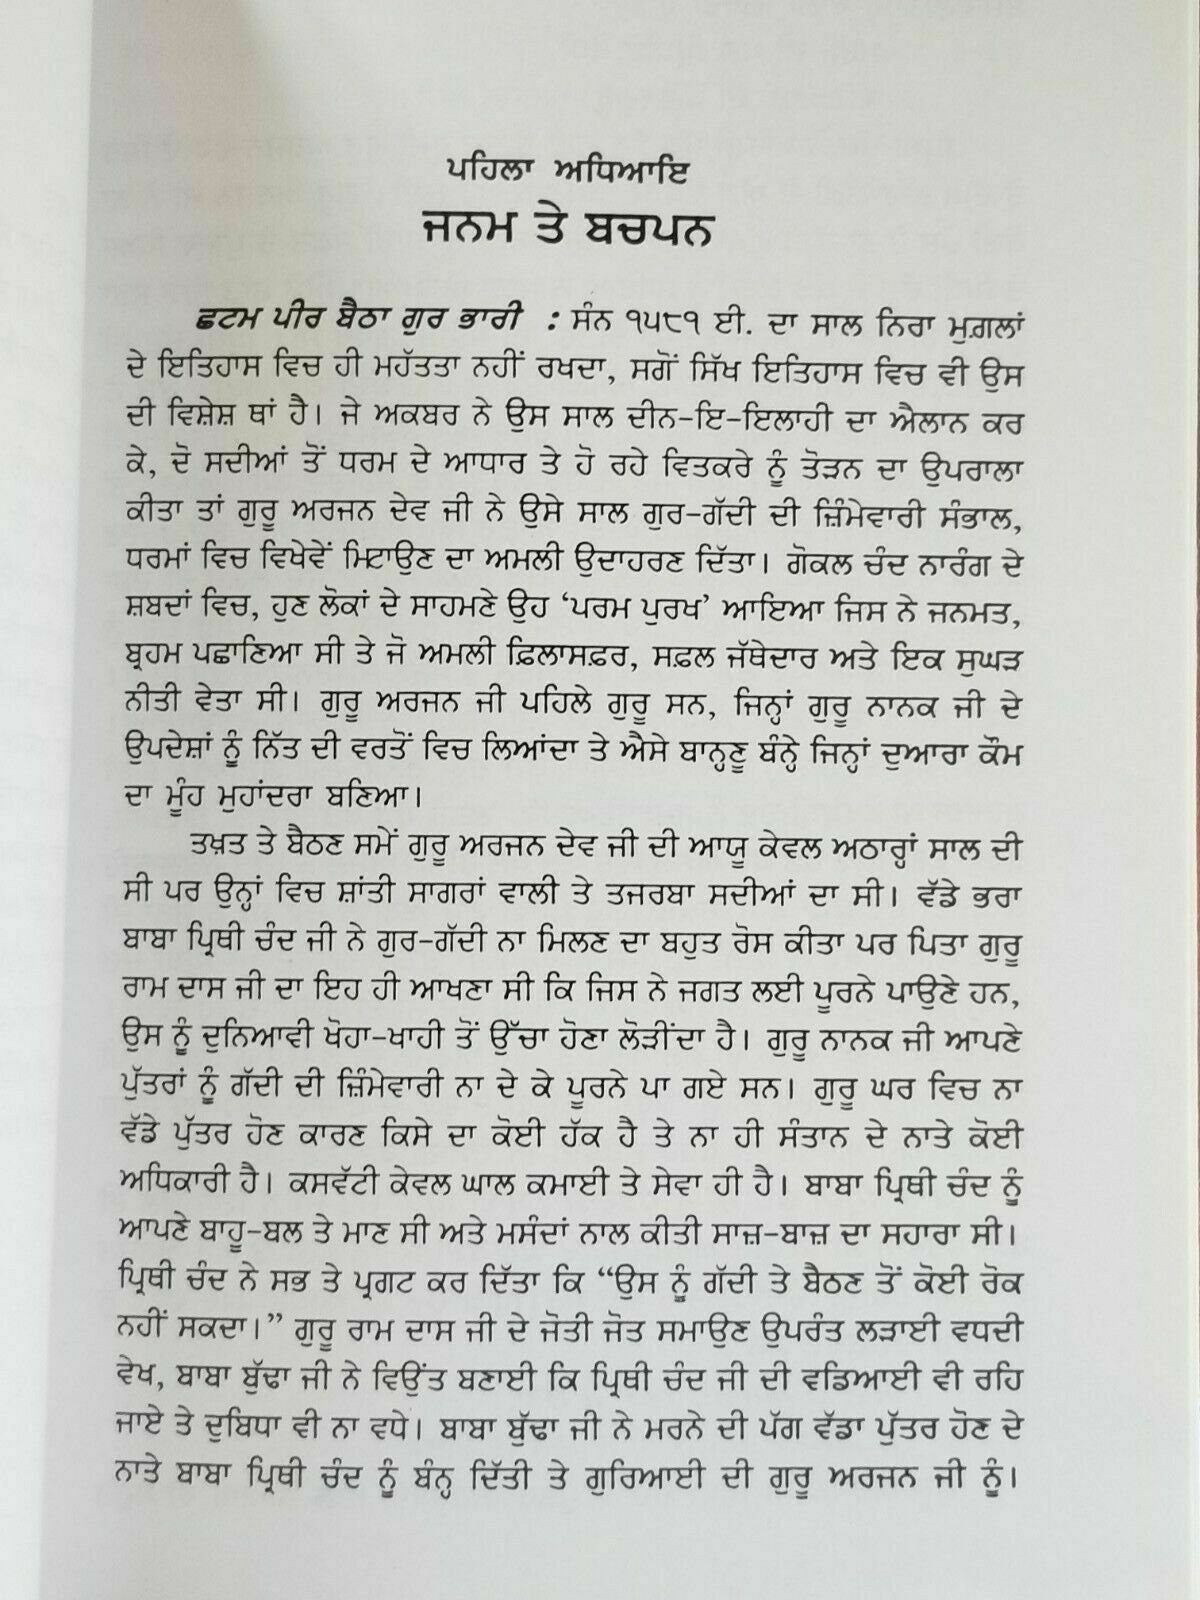 ਪਹਿਲਾ ਅਧਿਆਇ
ਜਨਮ ਤੇ ਬਚਪਨ
ਛਟਮ ਪੀਰ ਬੈਠਾ ਗੁਰ ਭਾਰੀ : ਸੰਨ ੧੫੮੧ ਈ. ਦਾ ਸਾਲ ਨਿਰਾ ਮੁਗ਼ਲਾਂ
ਦੇ ਇਤਿਹਾਸ ਵਿਚ ਹੀ ਮਹੱਤਤਾ ਨਹੀਂ ਰਖਦਾ, ਸਗੋਂ ਸਿੱਖ ਇਤਿਹਾਸ ਵਿਚ ਵੀ ਉਸ
ਦੀ ਵਿਸ਼ੇਸ਼ ਥਾਂ ਹੈ। ਜੇ ਅਕਬਰ ਨੇ ਉਸ ਸਾਲ ਦੀਨ-ਇ-ਇਲਾਹੀ ਦਾ ਐਲਾਨ ਕਰ
ਕੇ, ਦੋ ਸਦੀਆਂ ਤੋਂ ਧਰਮ ਦੇ ਆਧਾਰ ਤੇ ਹੋ ਰਹੇ ਵਿਤਕਰੇ ਨੂੰ ਤੋੜਨ ਦਾ ਉਪਰਾਲਾ
ਕੀਤਾ ਤਾਂ ਗੁਰੂ ਅਰਜਨ ਦੇਵ ਜੀ ਨੇ ਉਸੇ ਸਾਲ ਗੁਰ-ਗੱਦੀ ਦੀ ਜ਼ਿੰਮੇਵਾਰੀ ਸੰਭਾਲ,
ਧਰਮਾਂ ਵਿਚ ਵਿਖੇਵੇਂ ਮਿਟਾਉਣ ਦਾ ਅਮਲੀ ਉਦਾਹਰਣ ਦਿੱਤਾ। ਗੋਕਲ ਚੰਦ ਨਾਰੰਗ ਦੇ
ਸ਼ਬਦਾਂ ਵਿਚ, ਹੁਣ ਲੋਕਾਂ ਦੇ ਸਾਹਮਣੇ ਉਹ ‘ਪਰਮ ਪੁਰਖ’ ਆਇਆ ਜਿਸ ਨੇ ਜਨਮਤ,
ਬ੍ਰਹਮ ਪਛਾਣਿਆ ਸੀ ਤੇ ਜੋ ਅਮਲੀ ਫ਼ਿਲਾਸਫ਼ਰ, ਸਫ਼ਲ ਜੱਥੇਦਾਰ ਅਤੇ ਇਕ ਸੁਘੜ
ਨੀਤੀ ਵੇਤਾ ਸੀ। ਗੁਰੂ ਅਰਜਨ ਜੀ ਪਹਿਲੇ ਗੁਰੂ ਸਨ, ਜਿਨ੍ਹਾਂ ਗੁਰੂ ਨਾਨਕ ਜੀ ਦੇ
ਉਪਦੇਸ਼ਾਂ ਨੂੰ ਨਿੱਤ ਦੀ ਵਰਤੋਂ ਵਿਚ ਲਿਆਂਦਾ ਤੇ ਐਸੇ ਬਾਨ੍ਹਣੂ ਬੰਨ੍ਹੇ ਜਿਨ੍ਹਾਂ ਦੁਆਰਾ ਕੌਮ
ਦਾ ਮੂੰਹ ਮੁਹਾਂਦਰਾ ਬਣਿਆ।
ਤਖ਼ਤ ਤੇ ਬੈਠਣ ਸਮੇਂ ਗੁਰੂ ਅਰਜਨ ਦੇਵ ਜੀ ਦੀ ਆਯੂ ਕੇਵਲ ਅਠਾਰ੍ਹਾਂ ਸਾਲ ਦੀ
ਸੀ ਪਰ ਉਨ੍ਹਾਂ ਵਿਚ ਸ਼ਾਂਤੀ ਸਾਗਰਾਂ ਵਾਲੀ ਤੇ ਤਜਰਬਾ ਸਦੀਆਂ ਦਾ ਸੀ। ਵੱਡੇ ਭਰਾ
ਬਾਬਾ ਪ੍ਰਿਥੀ ਚੰਦ ਜੀ ਨੇ ਗੁਰ-ਗੱਦੀ ਨਾ ਮਿਲਣ ਦਾ ਬਹੁਤ ਰੋਸ ਕੀਤਾ ਪਰ ਪਿਤਾ ਗੁਰੂ
ਰਾਮ ਦਾਸ ਜੀ ਦਾ ਇਹ ਹੀ ਆਖਣਾ ਸੀ ਕਿ ਜਿਸ ਨੇ ਜਗਤ ਲਈ ਪੂਰਨੇ ਪਾਉਣੇ ਹਨ,
ਉਸ ਨੂੰ ਦੁਨਿਆਵੀ ਖੋਹਾ-ਖਾਹੀ ਤੋਂ ਉੱਚਾ ਹੋਣਾ ਲੋੜੀਂਦਾ ਹੈ। ਗੁਰੂ ਨਾਨਕ ਜੀ ਆਪਣੇ
ਪੁੱਤਰਾਂ ਨੂੰ ਗੱਦੀ ਦੀ ਜ਼ਿੰਮੇਵਾਰੀ ਨਾ ਦੇ ਕੇ ਪੂਰਨੇ ਪਾ ਗਏ ਸਨ। ਗੁਰੂ ਘਰ ਵਿਚ ਨਾ
ਵੱਡੇ ਪੁੱਤਰ ਹੋਣ ਕਾਰਣ ਕਿਸੇ ਦਾ ਕੋਈ ਹੱਕ ਹੈ ਤੇ ਨਾ ਹੀ ਸੰਤਾਨ ਦੇ ਨਾਤੇ ਕੋਈ
ਅਧਿਕਾਰੀ ਹੈ। ਕਸਵੱਟੀ ਕੇਵਲ ਘਾਲ ਕਮਾਈ ਤੇ ਸੇਵਾ ਹੀ ਹੈ। ਬਾਬਾ ਪ੍ਰਿਥੀ ਚੰਦ ਨੂੰ
ਆਪਣੇ ਬਾਹੂ-ਬਲ ਤੇ ਮਾਣ ਸੀ ਅਤੇ ਮਸੰਦਾਂ ਨਾਲ ਕੀਤੀ ਸਾਜ਼-ਬਾਜ਼ ਦਾ ਸਹਾਰਾ ਸੀ।
ਪ੍ਰਿਥੀ ਚੰਦ ਨੇ ਸਭ ਤੇ ਪ੍ਰਗਟ ਕਰ ਦਿੱਤਾ ਕਿ “ਉਸ ਨੂੰ ਗੱਦੀ ਤੇ ਬੈਠਣ ਤੋਂ ਕੋਈ ਰੋਕ
ਨਹੀਂ ਸਕਦਾ।” ਗੁਰੂ ਰਾਮ ਦਾਸ ਜੀ ਦੇ ਜੋਤੀ ਜੋਤ ਸਮਾਉਣ ਉਪਰੰਤ ਲੜਾਈ ਵਧਦੀ
ਵੇਖ, ਬਾਬਾ ਬੁੱਢਾ ਜੀ ਨੇ ਵਿਉਂਤ ਬਣਾਈ ਕਿ ਪ੍ਰਿਥੀ ਚੰਦ ਜੀ ਦੀ ਵਡਿਆਈ ਵੀ ਰਹਿ
ਜਾਏ ਤੇ ਦੁਬਿਧਾ ਵੀ ਨਾ ਵਧੇ। ਬਾਬਾ ਬੁੱਢਾ ਜੀ ਨੇ ਮਰਨੇ ਦੀ ਪੱਗ ਵੱਡਾ ਪੁੱਤਰ ਹੋਣ ਦੇ
ਨਾਤੇ ਬਾਬਾ ਪ੍ਰਿਥੀ ਚੰਦ ਨੂੰ ਬੰਨ੍ਹ ਦਿੱਤੀ ਤੇ ਗੁਰਿਆਈ ਦੀ ਗੁਰੂ ਅਰਜਨ ਜੀ ਨੂੰ।